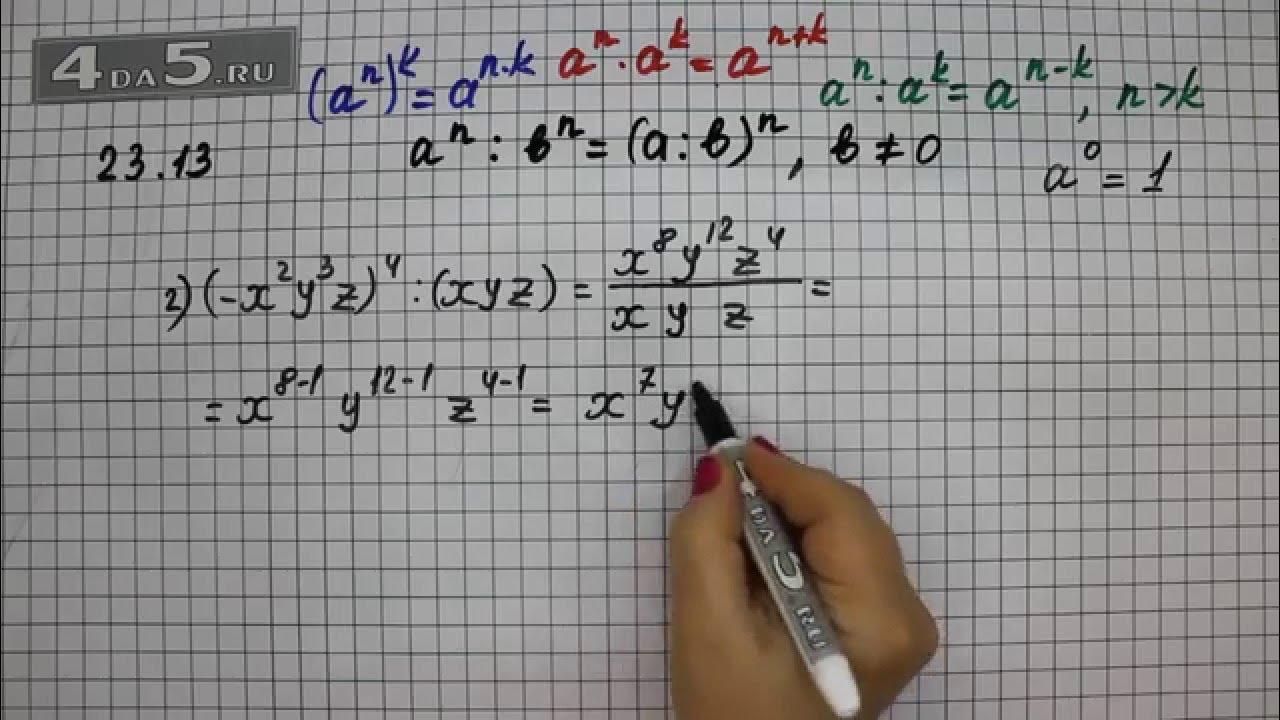 4 DA 5.RU
(aⁿ)ᵏ = aⁿ·ᵏ aⁿ · aᵏ = aⁿ⁺ᵏ aⁿ : aᵏ = aⁿ⁻ᵏ, n > k
23.13 aⁿ : вⁿ = (a : в)ⁿ, в ≠ 0 a⁰ = 1
2) (-x²y³z)⁴ : (xyz) = x⁸y¹²z⁴ / x y z =
= x⁸⁻¹ y¹²⁻¹ z⁴⁻¹ = x⁷y
DA 5.RU